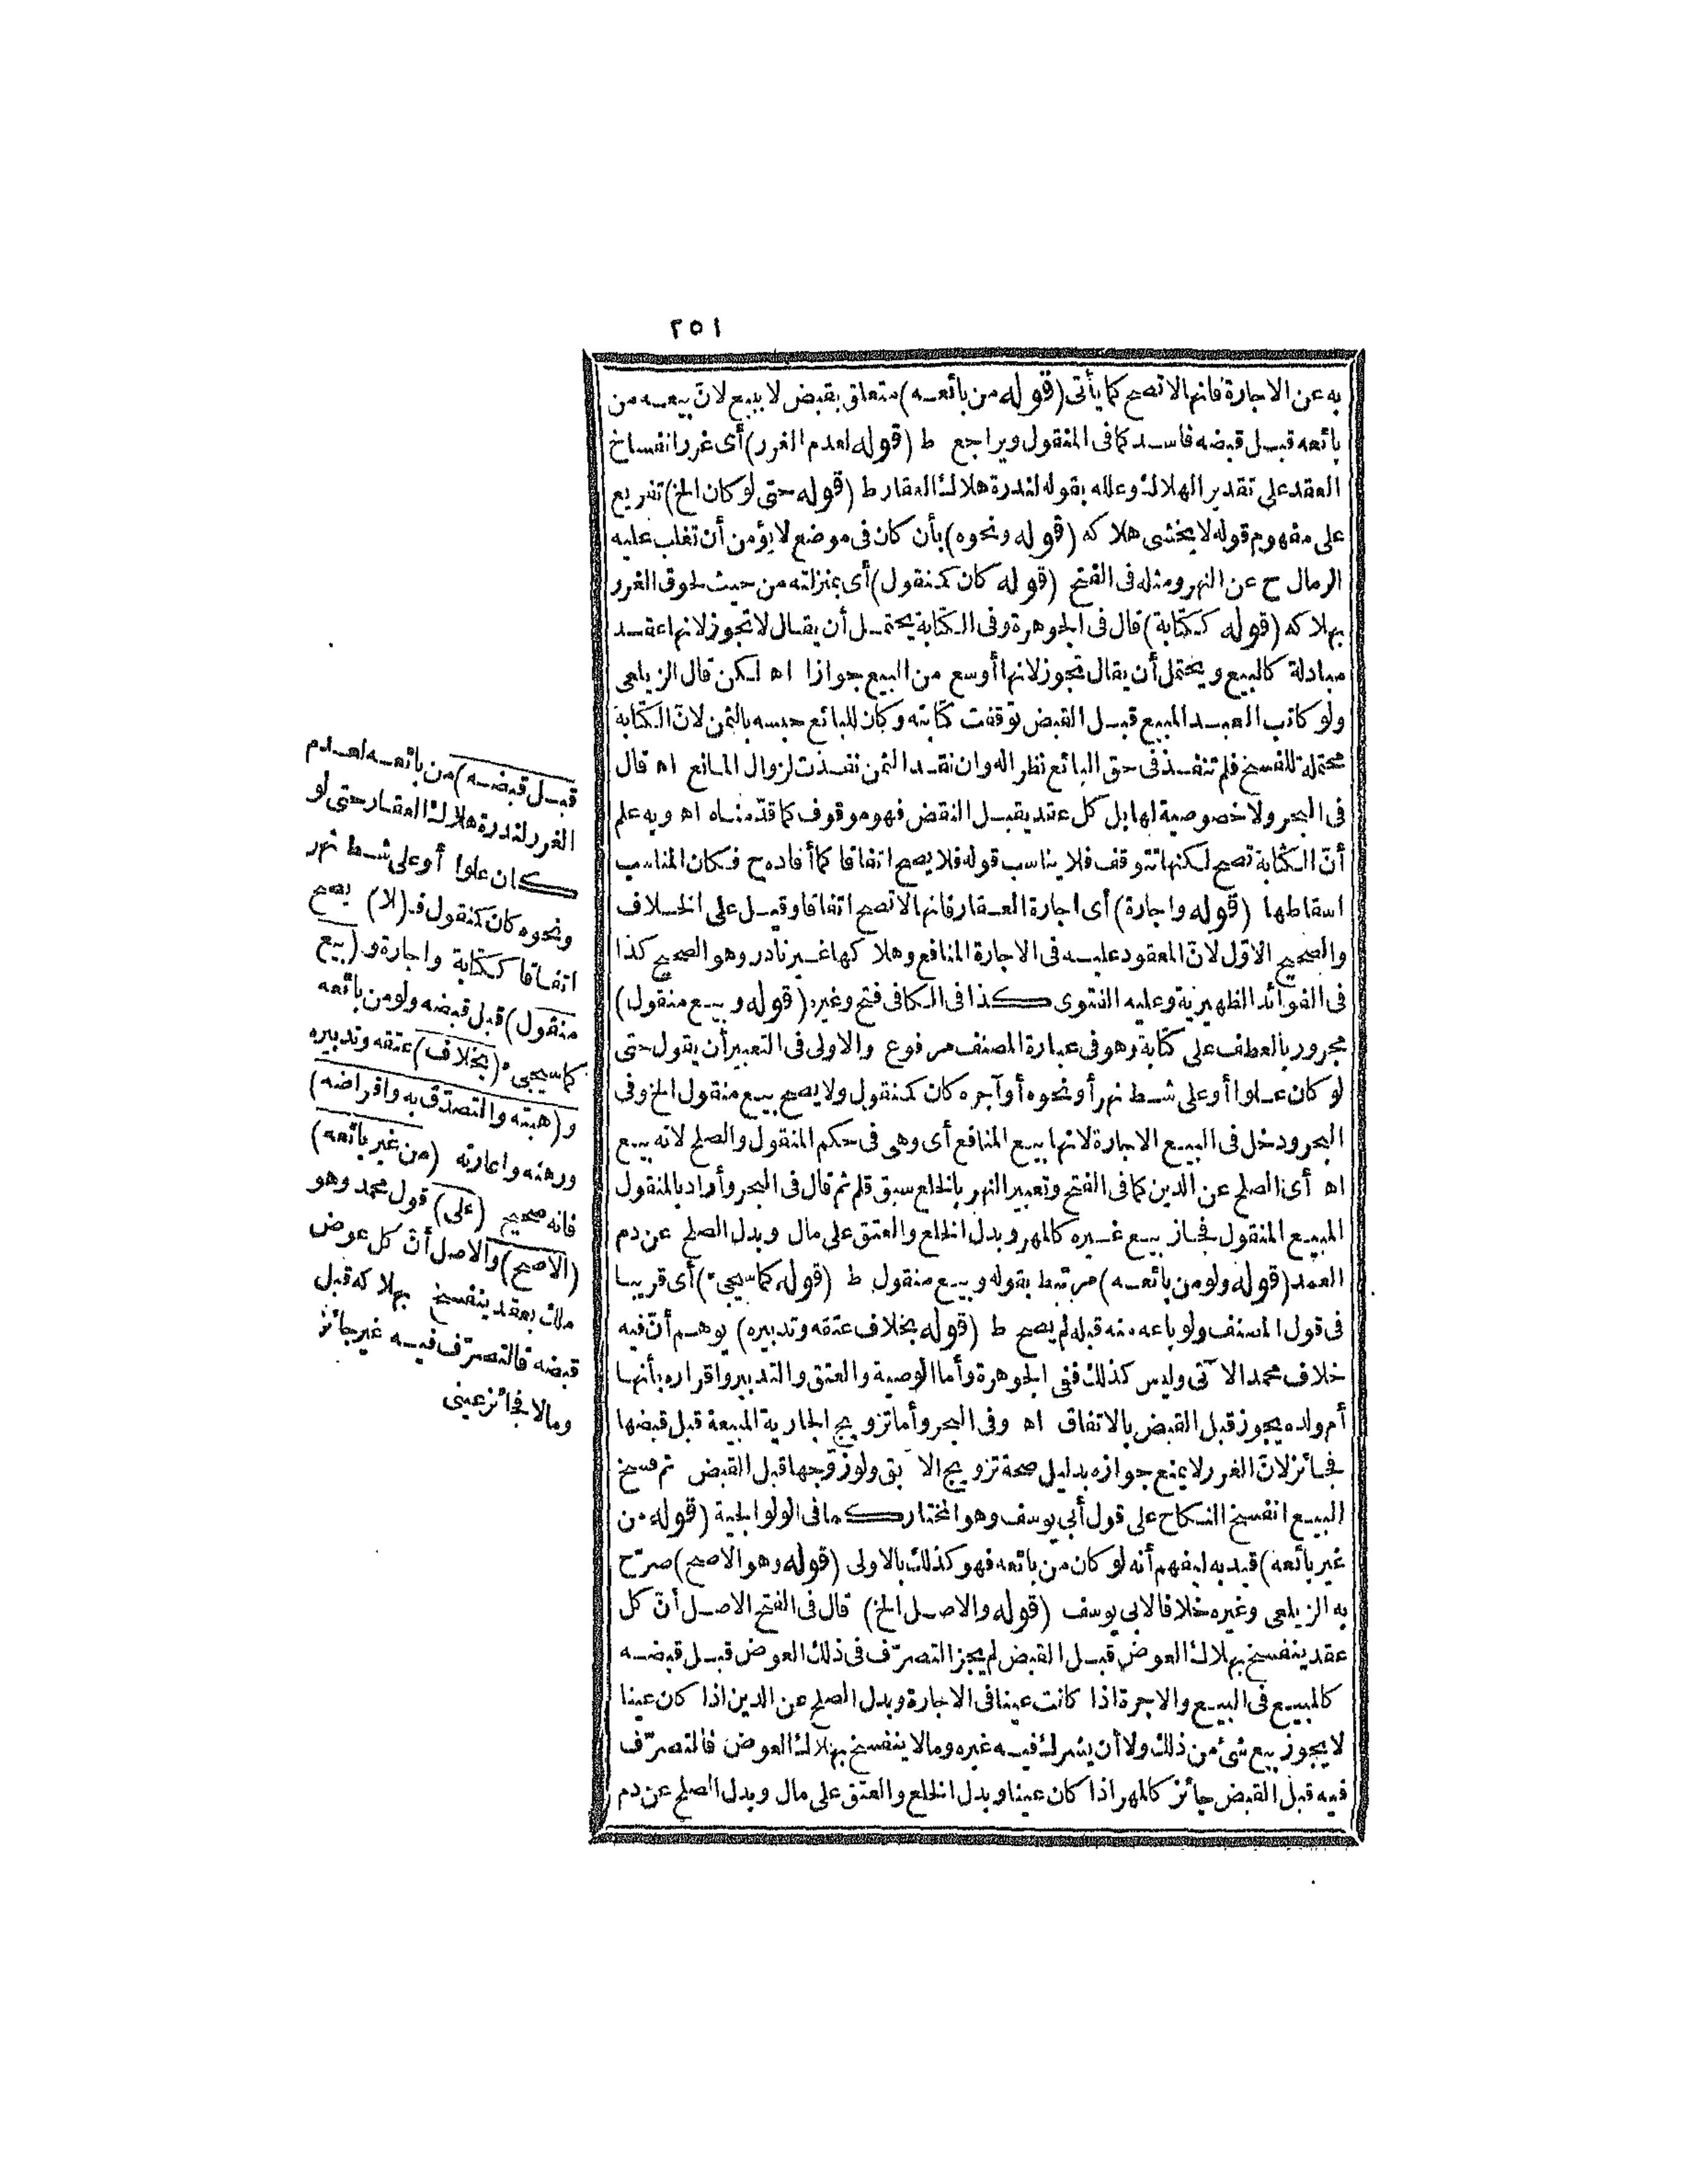 ٢٥١
به عن الاجارة فانها لا تصح كما يأتى (قوله من بائعه) متعلق بقبض لا ببيع لانّ بيعه من
بائعه قبل قبضه فاسد كما فى المنقول ويراجع ط (قوله لعدم الغرر) أى غرر انفساخ
العقد على تقدير الهلاك وعلله بقوله لندرة هلاك العقار ط (قوله حتى لو كان الخ) تفريع
على مفهوم قوله لا يخشى هلاكه (قوله ونحوه) بأن كان فى موضع لا يؤمن أن تغلب عليه
الرمال ح عن النهر ومثله فى الفتح (قوله كان كمنقول) أى بمنزلته من حيث لحوق الغرر
بهلاكه (قوله ككتابة) قال فى الجوهرة وفى الكتابة يحتمل أن يقال لا تجوز لانها عقد
مبادلة كالبيع ويحتمل أن يقال تجوز لانها أوسع من البيع جوازا اه لكن قال الزيلعى
ولو كاتب العبد المبيع قبل القبض توقفت كتابته وكان للبائع حبسه بالثمن لانّ الكتابة
محتملة للفسخ فلم تنفذ فى حق البائع نظرا له وان نقد الثمن نفذت لزوال المانع اه قال
فى البحر ولا خصوصية لها بل كل عقد يقبل النقض فهو موقوف كما قدّمناه اه وبه علم
أنّ الكتابة تصح لكنها تتوقف فلا يناسب قوله فلا يصح اتفاقا كما أفاده ح فكان المناسب
اسقاطها (قوله واجارة) أى اجارة العقار فانها لا تصح اتفاقا وقيل على الخلاف
والصحيح الاوّل لانّ المعقود عليه فى الاجارة المنافع وهلاكها غير نادر وهو الصحيح كذا
فى الفوائد الظهيرية وعليه الفتوى كذا فى الكافى فتح وغيره (قوله وبيع منقول)
مجرور بالعطف على كتابة وهو فى عبارة المصنف مرفوع والاولى فى التعبير أن يقول حتى
لو كان علوا أو على شط نهر أو نحوه أو آجره كان كمنقول ولا يصح بيع منقول الخ وفى
البحر ودخل فى البيع الاجارة لانها بيع المنافع أى وهى فى حكم المنقول والصلح لانه بيع
اه أى الصلح عن الدين كما فى الفتح وتعبير النهر بالخلع سبق قلم ثم قال فى البحر وأراد بالمنقول
المبيع المنقول فجاز بيع غيره كالمهر وبدل الخلع والعتق على مال وبدل الصلح عن دم
العمد (قوله ولو من بائعه) مرتبط بقوله وبيع منقول ط (قوله كما سيجىء) أى قريبا
فى قول المصنف ولو باعه منه قبله لم يصح ط (قوله بخلاف عتقه وتدبيره) يوهم أنّ فيه
خلاف محمد الآتى وليس كذلك ففى الجوهرة وأما الوصية والعتق والتدبير واقراره بأنها
أم ولده يجوز قبل القبض بالاتفاق اه وفى البحر وأما تزويج الجارية المبيعة قبل قبضها
فجائز لانّ الغرر لا يمنع جوازه بدليل صحة تزويج الآبق ولو زوّجها قبل القبض ثم فسخ
البيع انفسخ النكاح على قول أبى يوسف وهو المختار كما فى الولوالجية (قوله من
غير بائعه) قيد به ليفهم أنه لو كان من بائعه فهو كذلك بالاولى (قوله وهو الاصح) صرّح
به الزيلعى وغيره خلافا لابى يوسف (قوله والاصل الخ) قال فى الفتح الاصل أنّ كل
عقد ينفسخ بهلاك العوض قبل القبض لم يجز التصرّف فى ذلك العوض قبل قبضه
كالمبيع فى البيع والاجرة اذا كانت عينا فى الاجارة وبدل الصلح عن الدين اذا كان عينا
لا يجوز بيع شئ من ذلك ولا أن يشرك فيه غيره وما لا ينفسخ بهلاك العوض فالتصرّف
فيه قبل القبض جائز كالمهر اذا كان عينا وبدل الخلع والعتق على مال وبدل الصلح عن دم
قبل قبضه) من بائعه لعدم
الغرر لندرة هلاك العقار حتى لو
كان علوا أو على شط نهر
ونحوه كان كمنقول فـ(لا) يصح
اتفاقا ككتابة واجارة و(بيع
منقول) قبل قبضه ولو من بائعه
كما سيجىء (بخلاف) عتقه وتدبيره
و(هبته والتصدّق به واقراضه)
ورهنه واعارته (من غير بائعه)
فانه صحيح (على) قول محمد وهو
(الاصح) والاصل أنّ كل عوض
ملك بعقد ينفسخ بهلاكه قبل
قبضه فالتصرّف فيه غير جائز
وما لا فجائز عينى